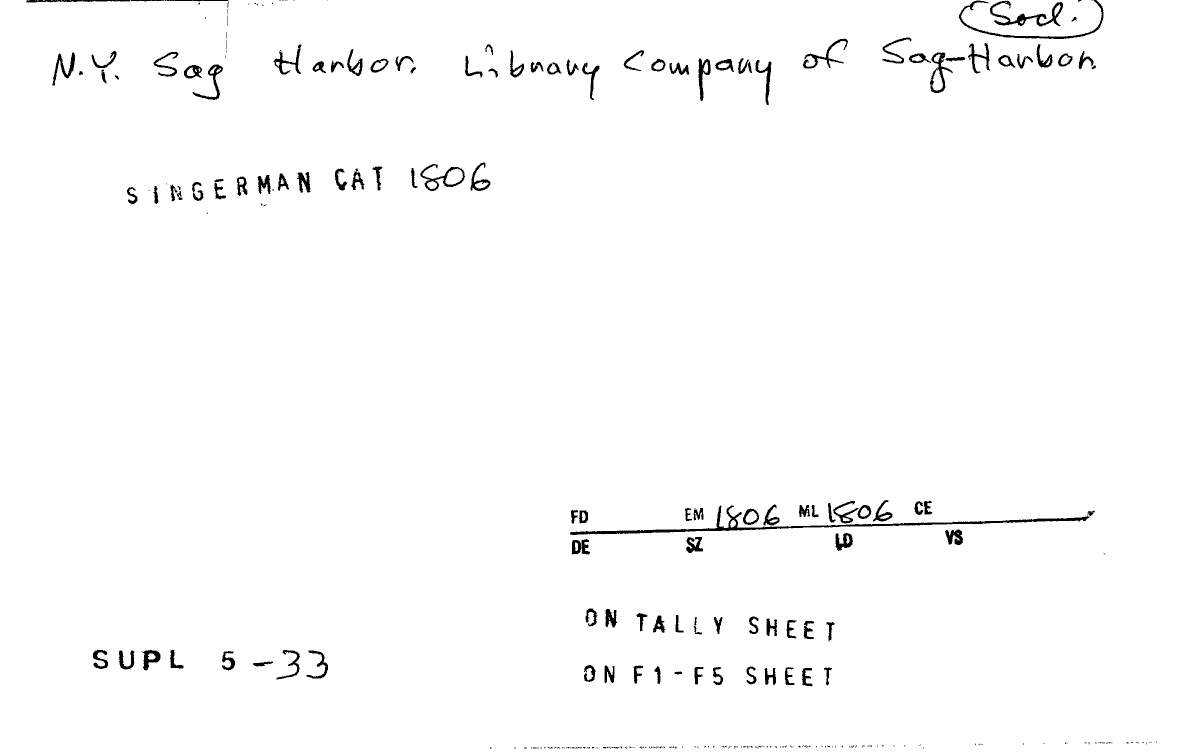 Socl.
N.Y. Sag Harbor. Library Company of Sag-Harbor.
SINGERMAN CAT 1806
FD EM 1806 ML 1806 CE
DE SZ LD VS
ON TALLY SHEET
SUPL 5-33
ON F1-F5 SHEET